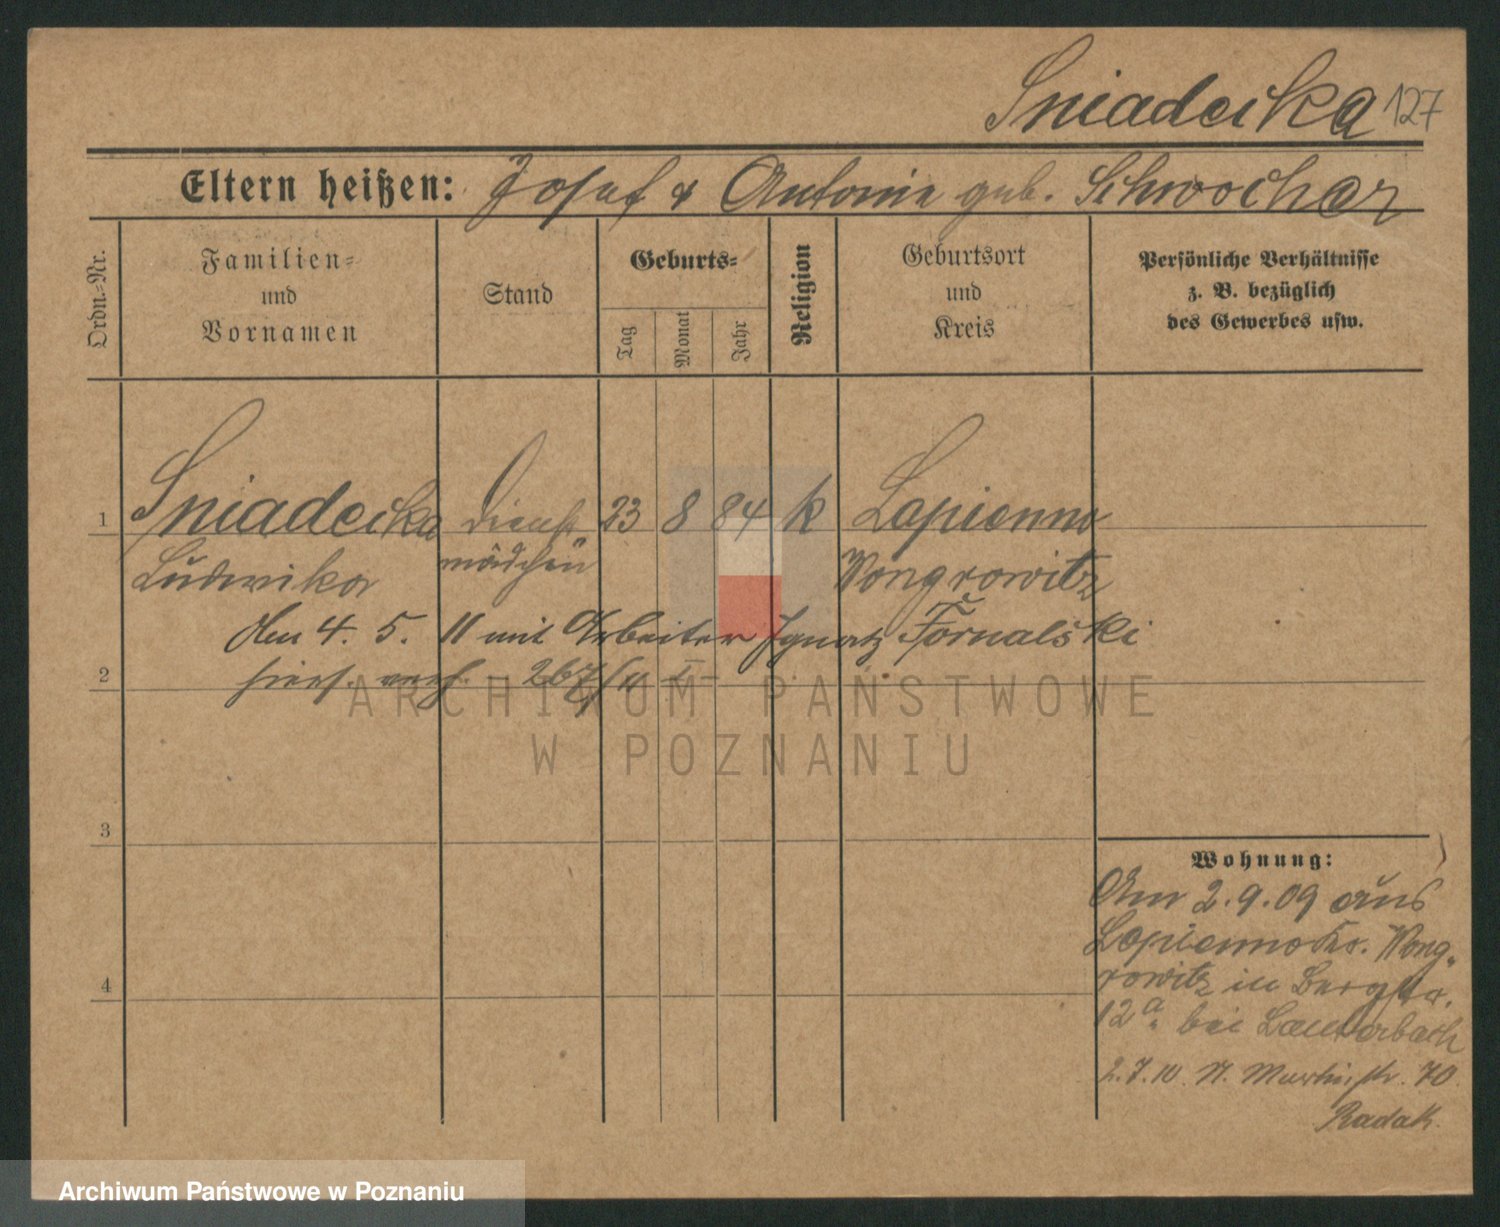 Sniadecka 127
Eltern heißen: Josef & Antonie geb. Schwochor
Ordn.-Nr.
Familien-
und
Vornamen
Stand
Geburts-
Tag
Monat
Jahr
Religion
Geburtsort
und
Kreis
Persönliche Verhältnisse
z. B. bezüglich
des Gewerbes usw.
1 Sniadecka Dienst 23 8 84 k Lapienno
Ludwika mädchen Wongrowitz
Am 4. 5. 11 mit Arbeiter Ignatz Fornalski
2 hies. verh. 267/11 I
3
Wohnung:
Am 2.9.09 aus
Lapienno Kr. Wong-
rowitz in Bergstr.
4 12a bei Lauterbach
2.7.10 St. Martinstr. 70
Radak.
ARCHIWUM PAŃSTWOWE
W POZNANIU
Archiwum Państwowe w Poznaniu